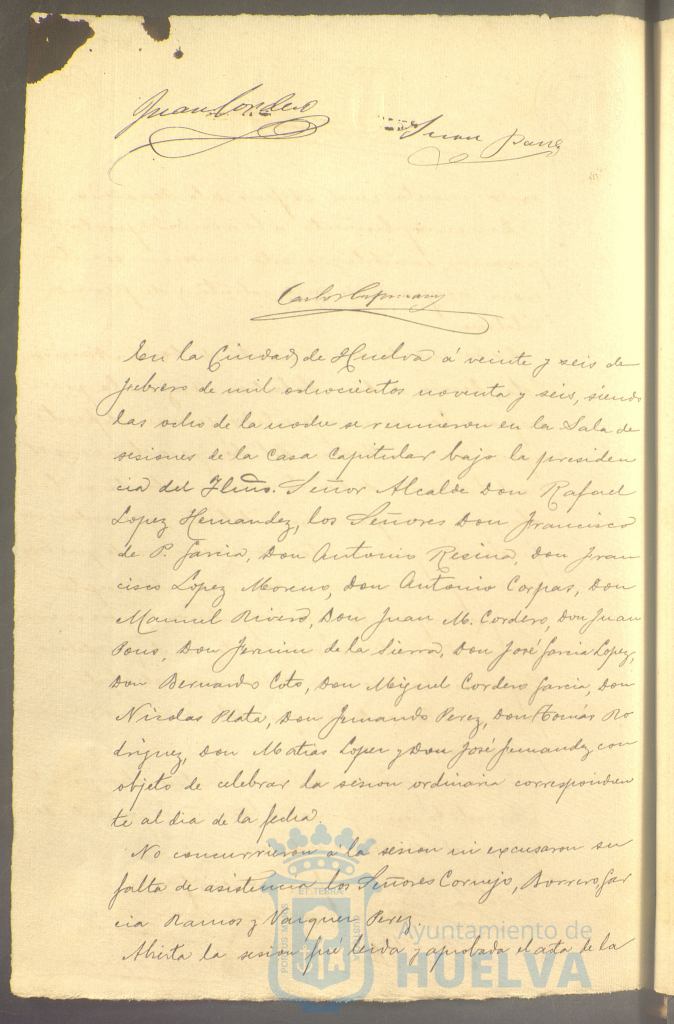 Juan Cordero
Juan Pons
Carlos
En la Ciudad de Huelva á veinte y seis de
febrero de mil ochocientos noventa y seis, siendo
las ocho de la noche se reunieron en la Sala de
sesiones de la Casa Capitular bajo la presiden
cia del Iltmo. Señor Alcalde Don Rafael
Lopez Hernandez, los Señores Don Francisco
de P. Garcia, Don Antonio Resina, Don Fran
cisco Lopez Moreno, Don Antonio Corpas, Don
Manuel Rivero, Don Juan M. Cordero, Don Juan
Pons, Don Fermin de la Sierra, Don José Garcia Lopez,
Don Bernardo Coto, Don Miguel Cordero Garcia, Don
Nicolas Plata, Don Fernando Perez, Don Tomás Ro
driguez, Don Matias Lopez y Don José Fernandez con
objeto de celebrar la sesion ordinaria correspondien
te al dia de la fecha.
No concurrieron á la sesion ni excusaron su
falta de asistencia los Señores Cornejo, Borrero, Gar
cia Ramos y Vazquez Perez
Abierta la sesion fué leida y aprobada el acta de la
Ayuntamiento de
HUELVA